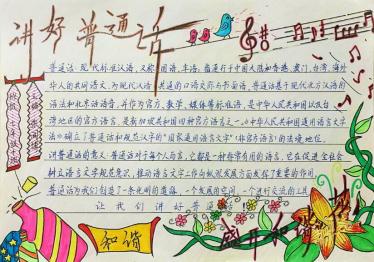 讲好普通话
普通话：现代标准汉语，又称国语、华语，指通行于中国大陆和香港、澳门、台湾、海外
华人的共同语文，为现代汉语共通的口语交际与书面语，普通话基于现代北方汉语的
语法和北京话语音，并作为官方、教学、媒体等标准语，是中华人民共和国以及台
湾地区的官方语言，是新加坡共和国四种官方语言之一。《中华人民共和国通用语言文字
法》确立了普通话和规范汉字的“国家通用语言文字”（非官方语言）的法定地位。
讲普通话的意义：普通话对于每个人而言，它都是一种非常有用的语言，它在促进全社会
树立语言文字规范意识，推动语言文字工作向纵深发展方面发挥了重要的作用。
普通话为我们创造了一条光明的道路，一个发展的空间，一个进行交流的工具
让我们讲好普通话！
和谐